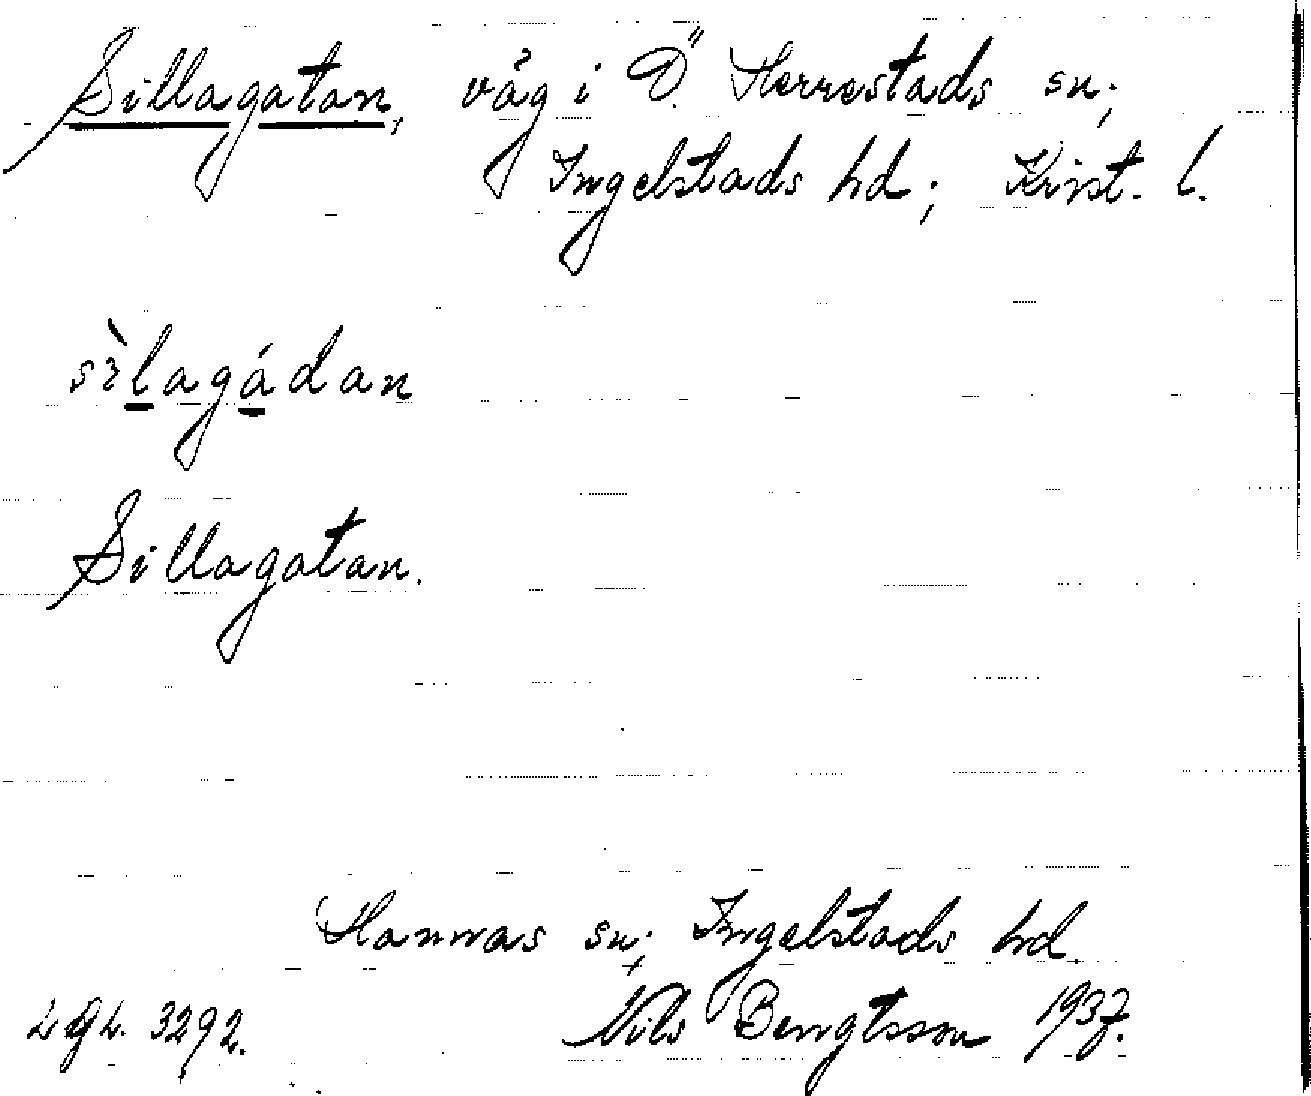 Sillagatan, väg i Ö. Herrestads sn;
Ingelstads hd; Krist. l.
sìlagádan
Sillagatan.
Hannas sn; Ingelstads hd.
Nils Bengtsson 1937.
3292.